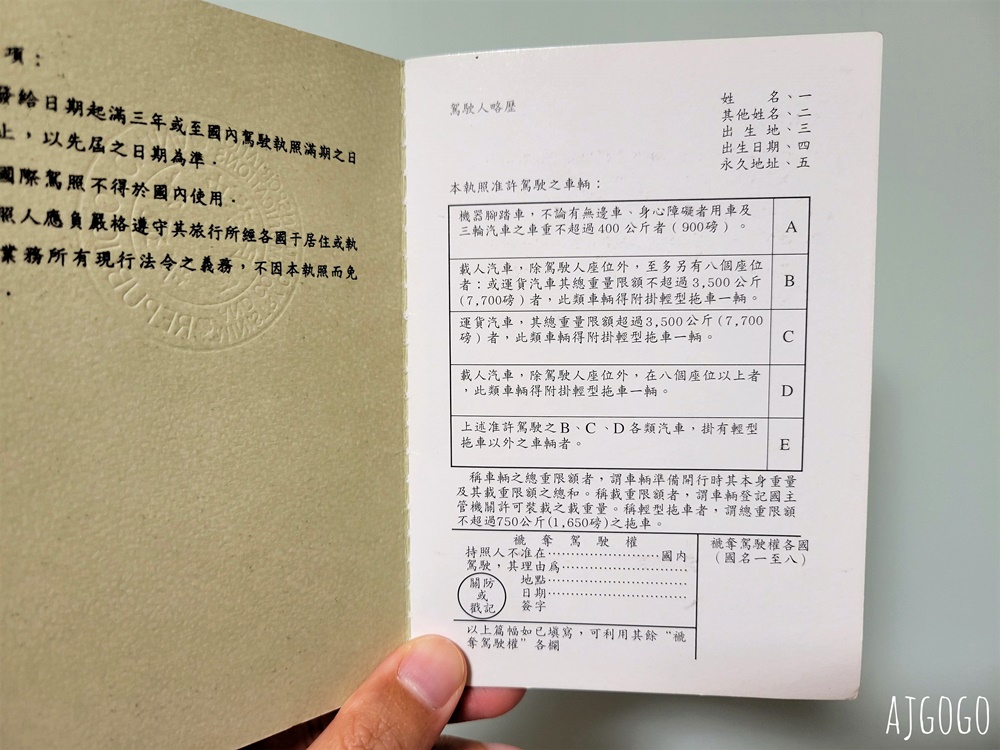 項：
發給日期起滿三年或至國內駕駛執照滿期之日
上，以先屆之日期為準．
國際駕照不得於國內使用．
照人應負嚴格遵守其旅行所經各國于居住或執
業務所有現行法令之義務，不因本執照而免
．
駕駛人略歷
姓　　名、一
其他姓名、二
出 生 地、三
出生日期、四
永久地址、五
本執照准許駕駛之車輛：
機器腳踏車，不論有無邊車、身心障礙者用車及
三輪汽車之車重不超過400公斤者（900磅）。
A
載人汽車，除駕駛人座位外，至多另有八個座位
者：或運貨汽車其總重量限額不超過3,500公斤
(7,700磅)者，此類車輛得附掛輕型拖車一輛。
B
運貨汽車，其總重量限額超過3,500公斤(7,700
磅)者，此類車輛得附掛輕型拖車一輛。
C
載人汽車，除駕駛人座位外，在八個座位以上者
，此類車輛得附掛輕型拖車一輛。
D
上述准許駕駛之B、C、D各類汽車，掛有輕型
拖車以外之車輛者。
E
稱車輛之總重限額者，謂車輛準備開行時其本身重量
及其載重限額之總和。稱載重限額者，謂車輛登記國主
管機關許可裝載之載重量。稱輕型拖車者，謂總重限額
不超過750公斤(1,650磅)之拖車。
褫 奪 駕 駛 權
持照人不准在························國內
駕駛，其理由為···························
地點································
日期································
簽字
關防
或
戳記
以上篇幅如已填寫，可利用其餘“褫
奪駕駛權”各欄
褫奪駕駛權各國
（國名一至八）
AJGOGO